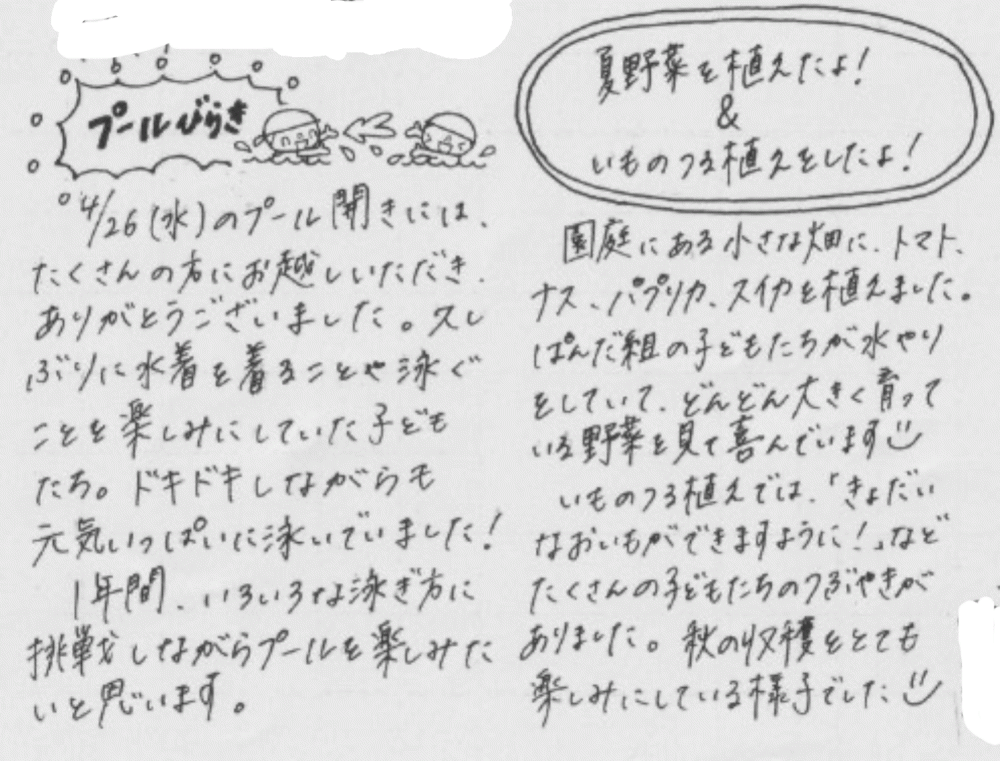 プールびらき
4/26(水)のプール開きには、
たくさんの方にお越しいただき、
ありがとうございました。久し
ぶりに水着を着ることや泳ぐ
ことを楽しみにしていた子ども
たち。ドキドキしながらも
元気いっぱいに泳いでいました！
1年間、いろいろな泳ぎ方に
挑戦しながらプールを楽しみた
いと思います。
夏野菜を植えたよ！
&
いものつる植えをしたよ！
園庭にある小さな畑に、トマト、
ナス、パプリカ、スイカを植えました。
ぱんだ組の子どもたちが水やり
をしていて、どんどん大きく育って
いる野菜を見て喜んでいます
いものつる植えでは、「きょだい
なおいもができますように！」など
たくさんの子どもたちのつぶやきが
ありました。秋の収穫をとても
楽しみにしている様子でした